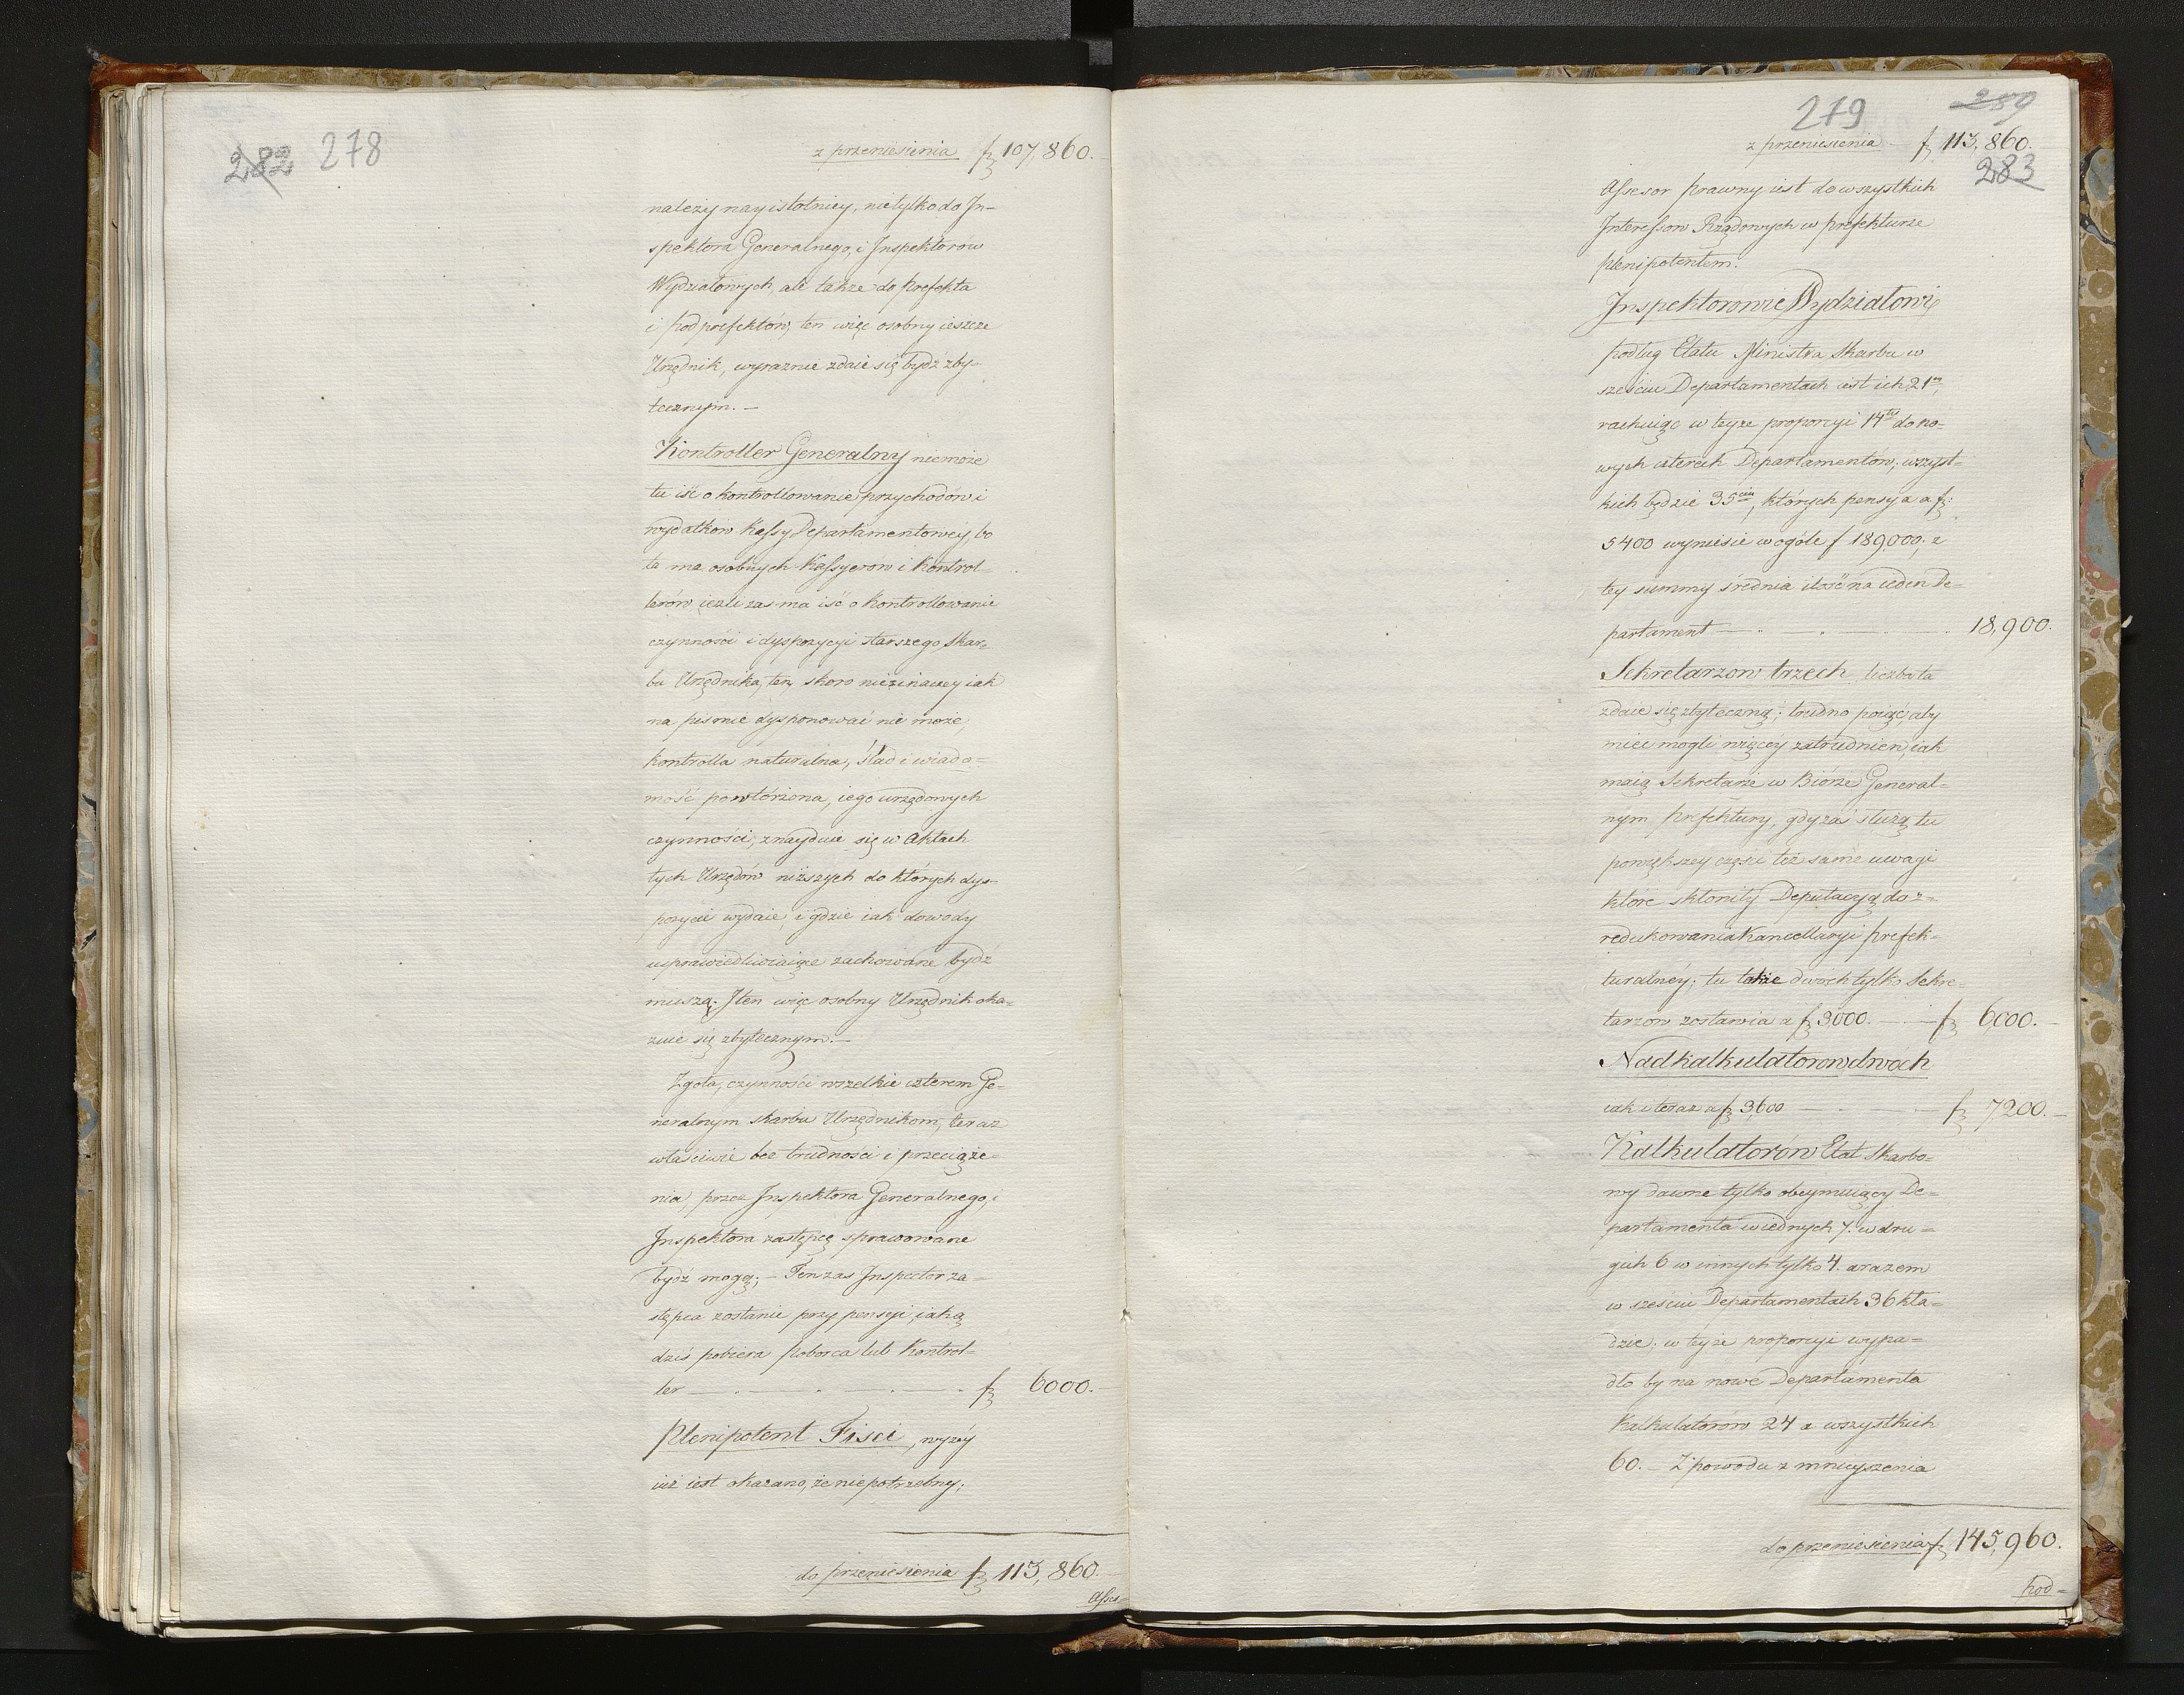 282 278
z przeniesienia fz 107,860.
należy nayistotniey, nietylko do In-
spektora Generalnego, i Inspektorów
Wydziałowych, ale także do prefekta
i podprefektów, ten więc osobny ieszcze
Urzędnik, wyraznie zdaie się bydź zby-
tecznym. —
Kontroller Generalny niemoże
tu iść o kontrollowanie przychodów i
wydatkow Kassy Departamentowey, bo
ta ma osobnych Kassyerow i Kontrol-
lerów ieżli zas ma iść o kontrollowanie
czynności i dyspozycyi starszego Skar=
bu Urzędnika, ten skoro nieinaczey iak
na pismie dysponować nie może,
kontrolla naturalna, ślad i wiado=
mość powtórzona, iego urzędowych
czynności, znayduie się w Aktach
tych Urzędów niższych do których dys-
pozycie wydaie, i gdzie iak dowody
usprawiedliwiaiące zachowane bydź
muszą. I ten więc osobny Urzędnik oka=
zuie się zbytecznym. —
Zgoła, czynności wszelkie czterem Ge-
neralnym skarbu Urzędnikom, teraz
właściwie bez trudności i przeciąże=
nia, przez Inspektora Generalnego, i
Inspektora zastępcę sprawowane
bydź mogą; — Ten zas Inspector za=
stępca zostanie przy pensyi, iaką
dziś pobiera Poborca lub Kontrol=
ler — . — . — . — . fz 6000.
Plenipotent Fisci, wyżéy
iuż iest okazano, że niepotrzebny;
do przeniesienia fz 113,860.
Asses-
279 289
z przeniesienia fz 113,860.
283
Assesor prawny iest do wszystkich
Interessow Rządowych w prefekturze
plenipotentem.
Inspektorowie Wydziałowi
podług Etatu Ministra Skarbu w
sześciu Departamentach iest ich 21
rachuiąc w teyże proporcyi 14tu do no-
wych czterech Departamentów; wszyst=
kich będzie 35ciu, których pensya a fz:
5400 wyniesie wogóle f 189,000; z
tey summy średnia ilość na ieden De-
partament — . — . — . — . 18,900.
Sekretarzow trzech liczba ta
zdaie się zbyteczną; trudno poiąć, aby
mieć mogli więcéy zatrudnień, iak
maią Sekretarze w Biórze General=
nym Prefektury, gdy zas służą tu
powiększey części też same uwagi
które skłoniły Deputacyą do z=
redukowania Kancellaryi prefek-
turalnéy; tu także dwóch tylko Sekre=
tarzow zostawia a fz 3,000. — — fz 6,000. —
Nadkalkulatorow dwóch
iak i teraz a fz 3,600 — — — fz 7,200. —
Kalkulatorów Etat Skarbo-
wy dawne tylko obeymuiący De=
partamenta w iednych 7. w dru=
gich 6 w innych tylko 4. a razem
w sześciu Departamentach 36 kła=
dzie; w teyże proporcyi wypa=
dło by na nowe Departamenta
Kalkulatorów 24 a wszystkich
60. — Z powodu zmnieyszenia
do przeniesienia fz 145,960.
pod=